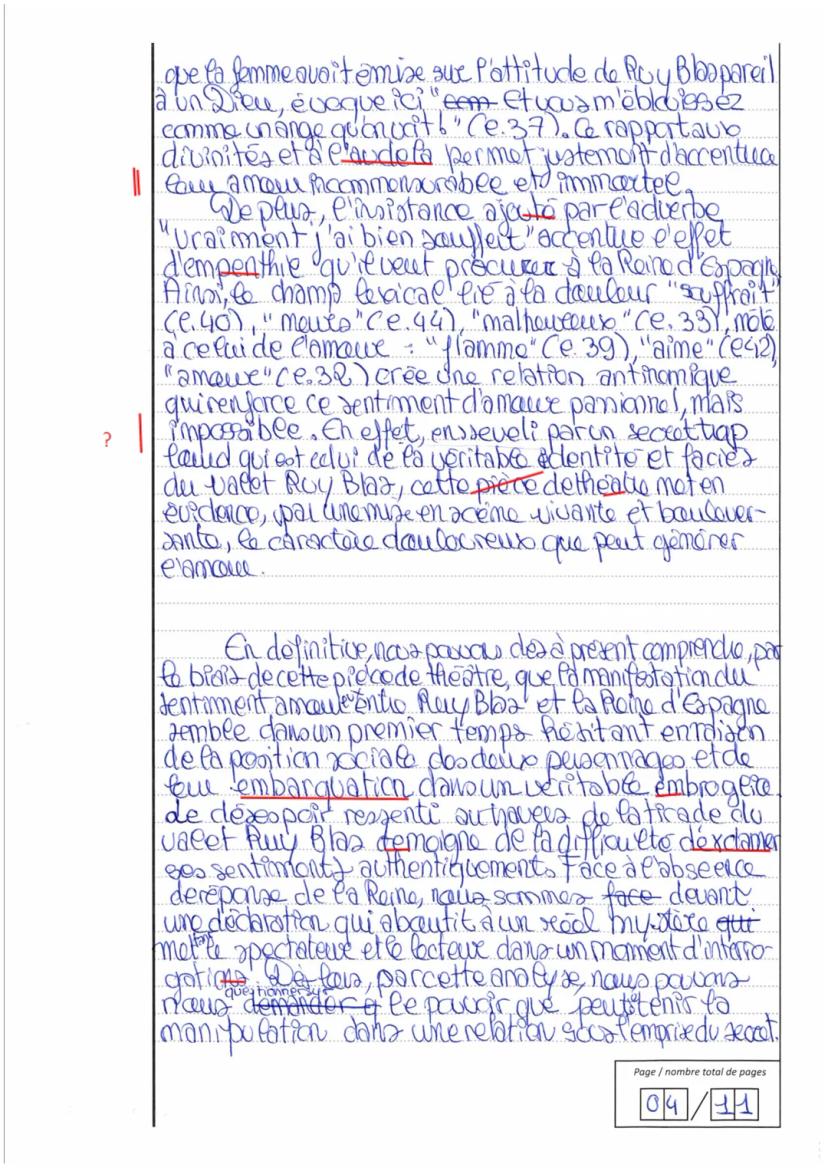 que la femme avait émise sur l'attitude de Ruy Blas pareil
à un Dieu, évoque ici "com Et vous m'éblouissez
comme un ange qu'on voit !" (l.37). Ce rapport aux
divinités et à l'audela permet justement d'accentuer
leur amour incommensurable et immortel.
De plus, l'insistance ajouté par l'adverbe
"vraiment j'ai bien souffert" accentue l'effet
d'empenthie qu'il veut procurer à la Reine d'Espagne
Ainsi, le champ lexical lié à la douleur "souffrait"
(l.40), "meurs" (l.44), "malheureux" (l.33), mêlé
à celui de l'amour : "flamme" (l.39), "aime" (l.42)
"amour" (l.32) crée une relation antinomique
qui renforce ce sentiment d'amour passionnel, mais
?
impossible. En effet, enseveli par un secret trop
lourd qui est celui de la véritable identité et faciès
du valet Ruy Blas, cette pièce de théatre met en
évidence, par une mise en scène vivante et boulever-
sante, le caractère douloureux que peut générer
l'amour.
En définitive, nous pouvons dès à présent comprendre, par
le biais de cette pièce de théâtre, que la manifestation du
sentiment amoureux entre Ruy Blas et la Reine d'Espagne
semble dans un premier temps hésitant en raison
de la position sociale des deux personnages et de
leur embarquation dans un véritable embroglio.
de désespoir ressenti au travers de la tirade du
valet Ruy Blas temoigne de la difficulté d'exclamer
ses sentiments authentiquements. Face à l'absence
de réponse de la Reine, nous sommes face devant
une déclaration qui aboutit à un réel mystère qui
mettant le spectateur et le lecteur dans un moment d'interro-
gations. Dès lors, par cette analyse, nous pouvons
nous demander q questionner sur le pouvoir que peut tenir la
manipulation dans une relation sous l'emprise du secret.
Page / nombre total de pages
04 / 11